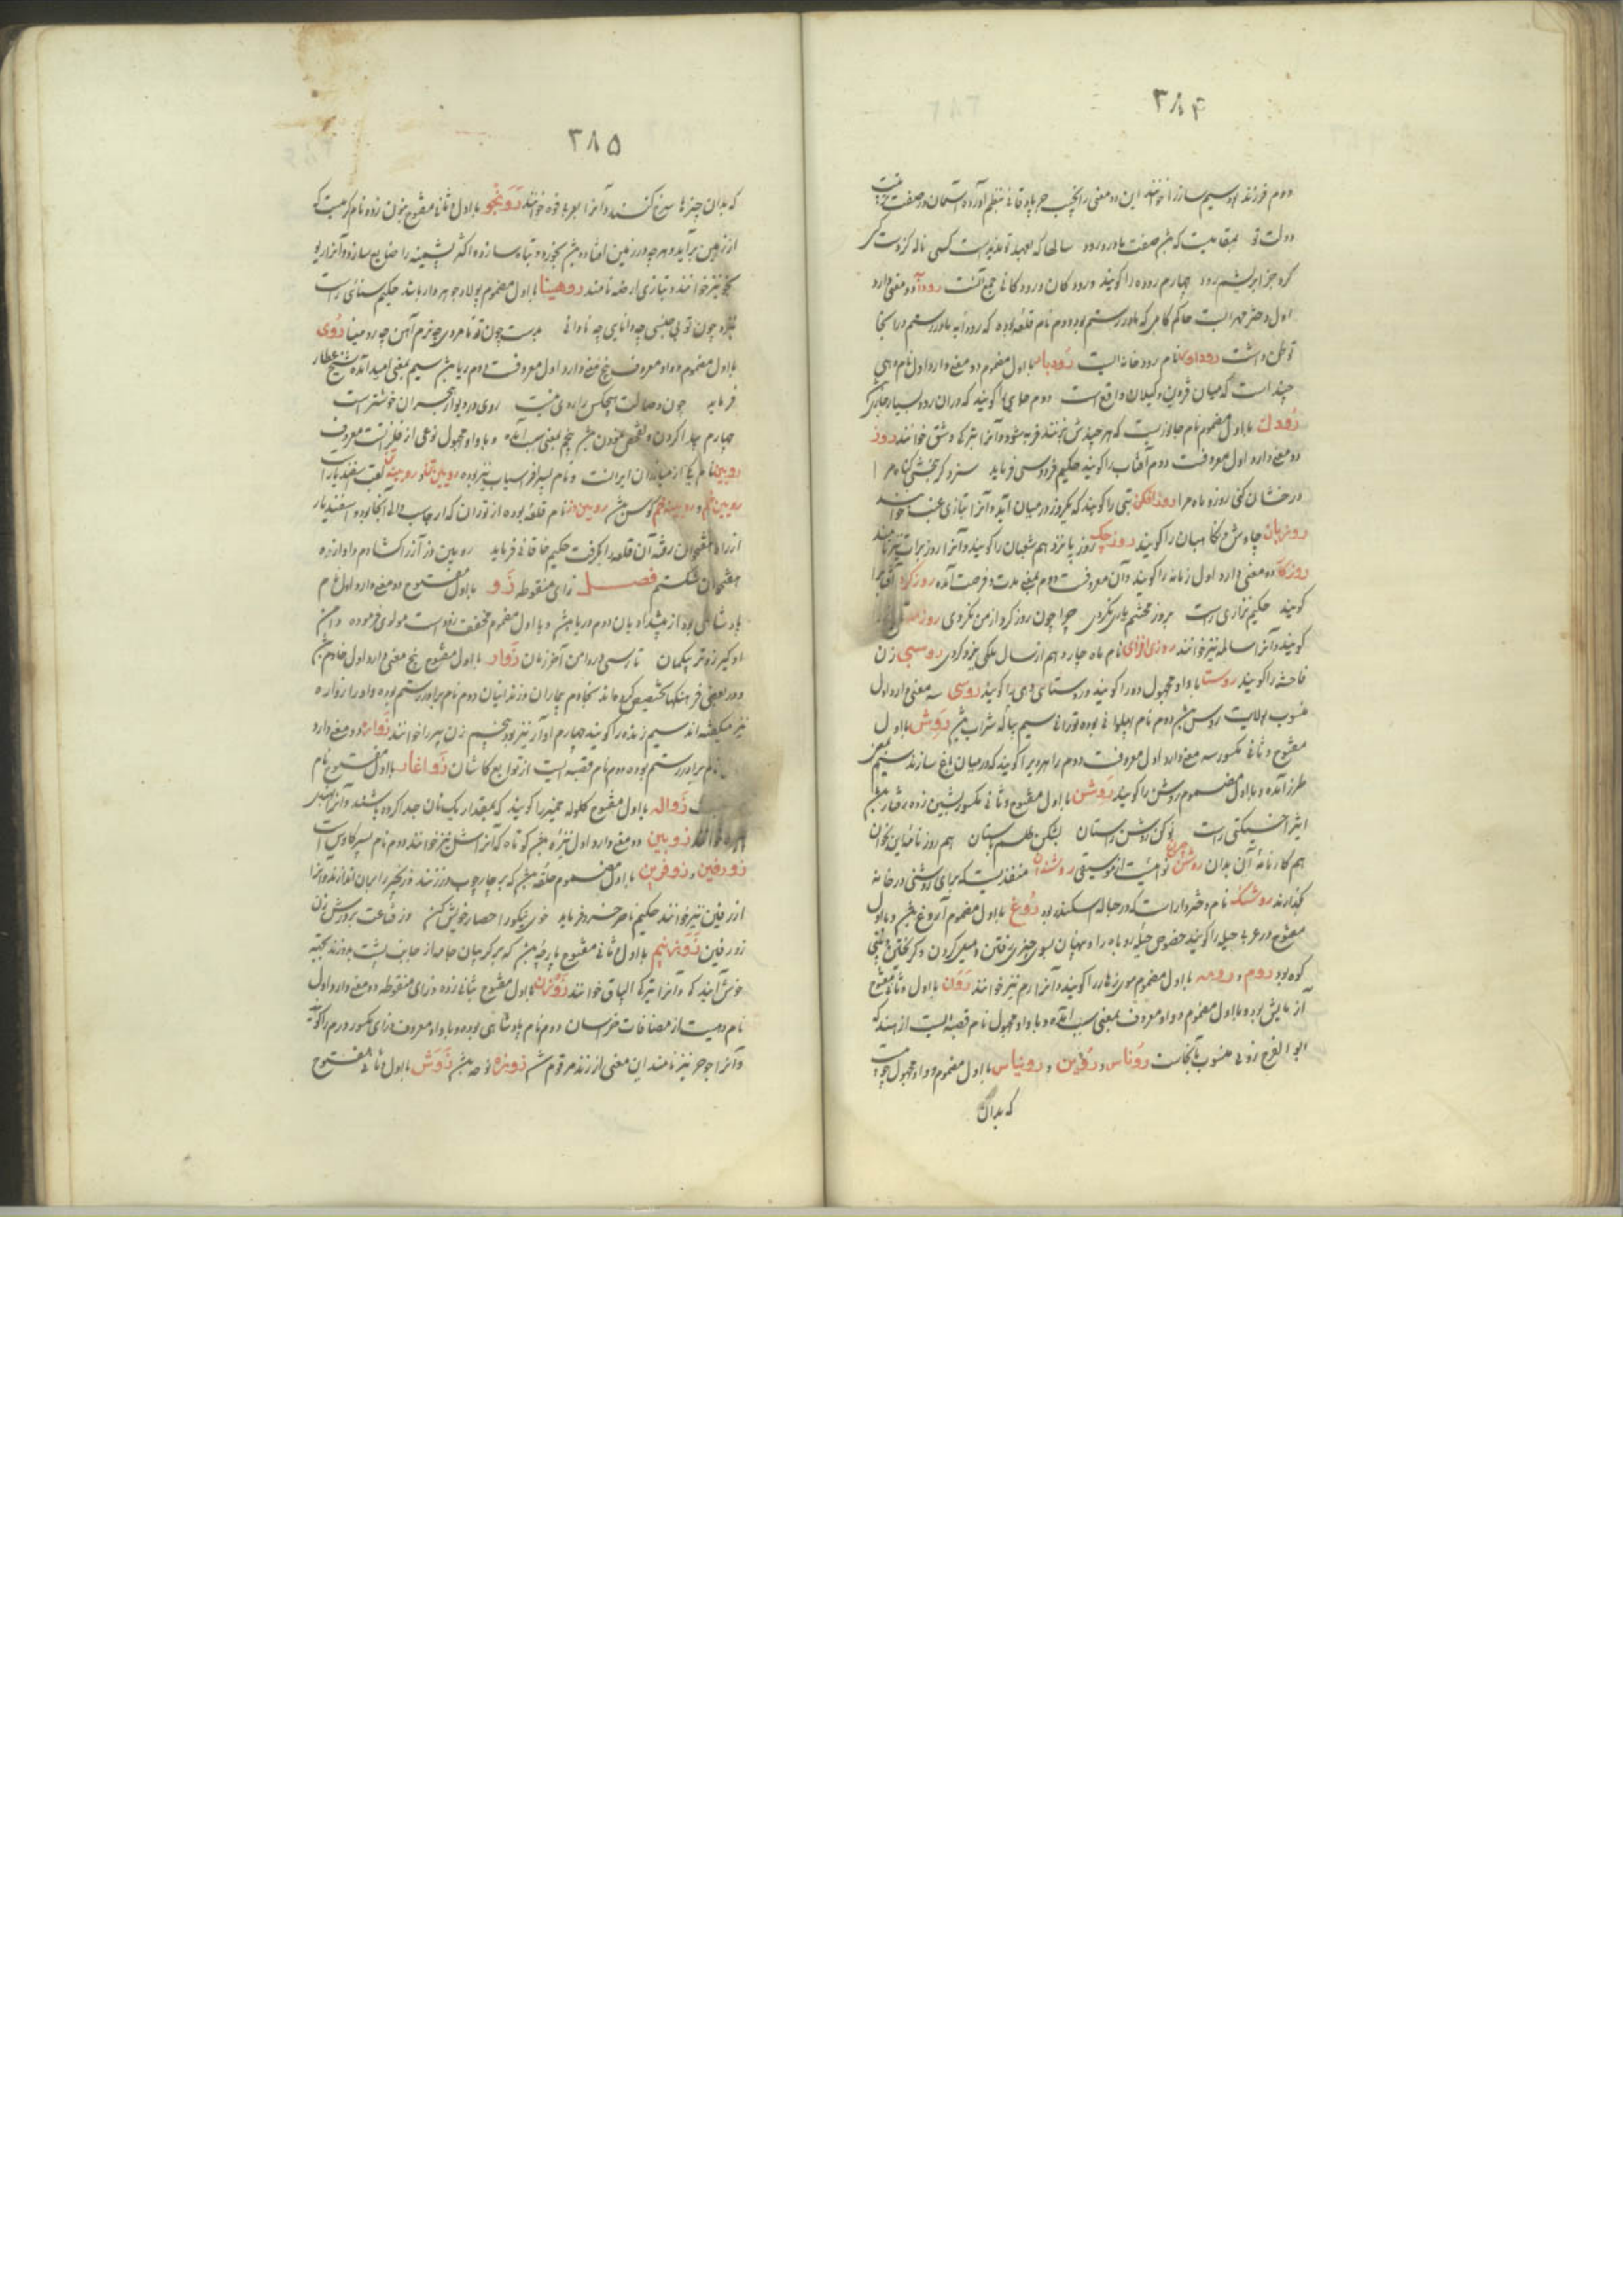 ۳۸۴
دوم فرزند بود سیم سازرا خوانند این دو معنی را نجیب جرباد قانی بنظم آورده
دولت تو بمقامیست که صفت مادر و رود سالها که بعهد تو ندیدست کسی ناله کز دست کسی
کرد جز ابریشم رود چهارم روده را گویند ورود کان ورودکانی جمع آنست رودآ دو معنی دارد
اول دختر مهراب حاکم کابل که مادر رستم بود دوم نام قلعه بوده که رودابه مادر رستم در انجا
توطن داشت روداوند نام رودخانه ایست رودبار با اول مضموم دو معنی دارد اول نام دهی
چند است که میان قزوین و گیلان واقع است دوم جایی را گویند که دران رود بسیار جاری
رودك با اول مضموم نام جانوریست که هرچندش بزنند فربه شود و آنرا بترکی وشق خوانند روز
دو معنی دارد اول معروفست دوم آفتاب را گویند حکیم فردوسی فرماید سزد گر ببخشی گناه مرا
درخشان کنی روز و ماه مرا روزافکن تبی را گویند که یکروز در میان آید و آنرا بتازی غب خوانند
روزبان چاوش و نگاهبان را گویند روز چک روز پانزدهم شعبان را گویند و آنرا روز برات نیز نامند
روزگار دو معنی دارد اول زمانه را گویند و آن معروفست دوم بمعنی مدت و فرصت آمده روز گرد آفتاب را
گویند حکیم نزاری راست بروز محشرم یاری نکردی چرا چون روز گرد از من نگردی
گویند و آنرا سالمه نیز خوانند روز افزای نام ماه چاردهم از سال ملکی یزدگردی روسپی زن
فاحشه را گویند روستا با واو مجهول ده را گویند و روستای دهی را گویند روسی سه معنی دارد اول
منسوب بولایت روس دوم نام پهلوانی بوده تورانی سیم پیاله شراب رَوِش با اول
مفتوح و ثانی مکسور سه معنی دارد اول معروفست دوم راهرو را گویند که در میان باغ سازند سیم بمعنی
طرز آمده و با اول مضموم روش را گویند روش با اول مفتوح و ثانی مکسور بشین زده رفتار
اثیر اخسیکتی راست نو کن روش راستان بشکن طلسم باستان هم روزنامه این بخوان
هم کارنامه آن بدان روشن چراغ نواییست از موسیقی روشندان منفذیست که برای روشنی در خانه
گذارند روشنک نام دختر داراست که در حباله اسکندر بود رُوغ با اول مضموم آروغ و با اول
مفتوح در عربی حیله را گویند خصوص حیله روباه را و پنهان بسوی چیزی رفتن و میل کردن و گریختن
کوه بود روم و رومه با اول مضموم موی زهار را گویند و آنرا رم نیز خوانند رَوَن با اول و ثانی مفتوح
آزمایش بود و با اول مضموم و واو معروف بمعنی سبب آمده و با واو مجهول نام قصبه ایست از هند که
ابوالفرج رونی منسوب بآنجاست روناس و روین و روینیاس با اول مضموم و واو مجهول
که بدان
۳۸۵
که بدان چیزها سرخ کنند و آنرا بعربی فوه خوانند رَوَنجو با اول و ثانی مفتوح بنون زده نام کرمیست که
از زمین برآید و هرچه در زمین افتاده بخورد و تباه سازد و اکثر پشمینه را ضایع سازد و آنرا ریو
نجو نیز خوانند و بتازی ارضه نامند روهینا با اول مضموم پولاد جوهردار باشد حکیم سنائی راست
نبود چون تو بی جنسی چه دانایی چه نادانی بدست چون تو نامردی چه نرم آهن چه روهینا رُوی
با اول مضموم و واو معروف پنج معنی دارد اول معروفست دوم ریا سیم بمعنی امید آمده شیخ عطار
فرماید چون وصالت هیچکس را روی نیست روی در دیوار هجران خوشترست
چهارم پیدا کردن و تفحص نمودن پنجم بمعنی سبب آمده و با واو مجهول نوعی از فلزاتست معروف
رویین نام یکی از مبارزان ایرانست و نام پسر افراسیاب نیز بوده رویین تن لقب اسفندیار است
رویین خم و رویینه خم کوس رویین دز نام قلعه بوده از توران که ارجاسپ والی آنجا بود و اسفندیار
از راه هفتخوان رفته آن قلعه را بگرفت حکیم خاقانی فرماید رویین دز آزرا گشادم وآوازه
هفتخوان شکستم فصل زای منقوطه زَو با اول مفتوح دو معنی دارد اول نام
پادشاهی بود از پیشدادیان دوم دریا و با اول مضموم مخفف زودست مولوی فرموده دامن
او گیر زوتر بیگمان تا رسی در دامن آخر زمان زَوار با اول مفتوح پنج معنی دارد اول خادم
و در بعضی فرهنگها بتخصیص کرده اند بخادم بیماران و زندانیان دوم نام برادر رستم بوده و او را زواره
نیز میگفته اند سیم زنده را گویند چهارم آواز نیز بود پنجم زن پیر را خوانند زَواره دو معنی دارد
نام برادر رستم بوده دوم نام قصبه ایست از توابع کاشان زَواغار با اول مفتوح نام
زَواله با اول مفتوح گلوله خمیر را گویند که بمقدار یک نان جدا کرده باشند
زوبین دو معنی دارد اول نیزه کوتاه که آنرا شل نیز خوانند دوم نام پسر کاوس است
زورفین و زوفرین با اول مضموم حلقه که بر چارچوب در زنند و زنجیر را بران اندازند و آنرا
زرفین نیز خوانند حکیم ناصر خسرو فرماید خوی نیکو را حصار خویش کن وز قناعت بر درش زن
زورفین زَوَنهیم با اول و ثانی مفتوح پارچه که بر گریبان جامه از جانب پشت بدوزند بجهة
خوش آیندگی و آنرا بترکی الباق خوانند زَوزَن با اول مفتوح بثانی زده و زای منقوطه دو معنی دارد اول
نام دهیست از مضافات خراسان دوم نام پادشاهی بوده و با واو معروف و زای مکسور درم را گویند
و آنرا جوجن نیز نامند این معنی از زند مرقوم شد زوزه نوحه زَوَش با اول و ثانی مفتوح